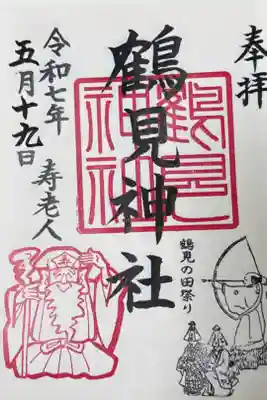 奉拝
鶴見神社
鶴見神社
鶴見の田祭り
寿老人
令和七年
五月十九日